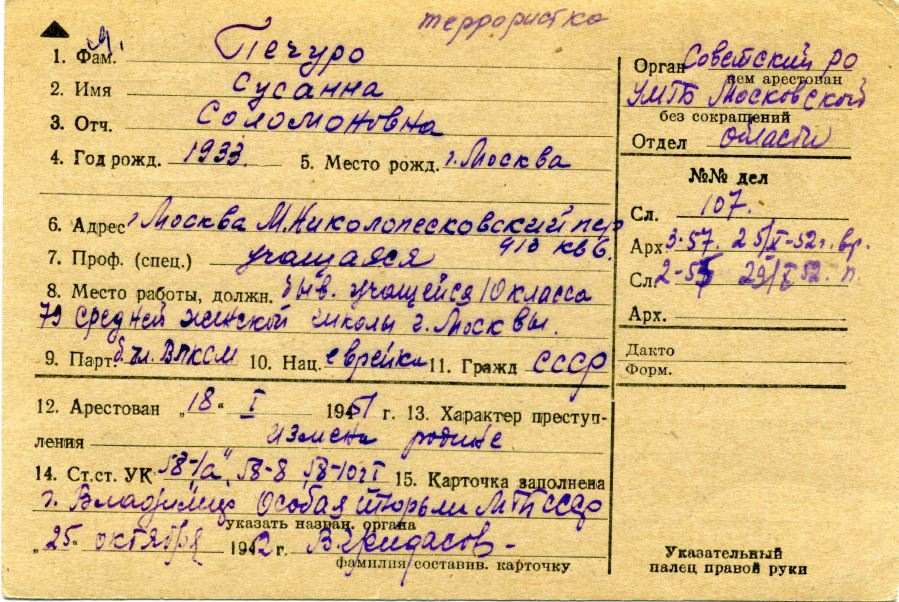 террористка
1. Фам. Печуро
2. Имя Сусанна
3. Отч. Соломоновна
4. Год рожд. 1933. 5. Место рожд. г. Москва
6. Адрес г Москва М. Николопесковский пер
кв 6.
7. Проф. (спец.) учащаяся
8. Место работы, должн. быв. учащейся 10 класса
79 средней женской школы г. Москвы.
9. Парт. чл. ВЛКСМ 10. Нац. еврейка 11. Гражд СССР
12. Арестован „18“ I 1951 г. 13. Характер преступ-
ления измена родине
14. Ст.ст. УК 58-1„а“, 58-8, 58-10 ч I 15. Карточка заполнена
г. Владимир Особая тюрьма МГБ СССР
указать назван. органа
„25“ октября 1952 г.
фамилия составив. карточку
Орган Советский РО
кем арестован
УМГБ Московской
без сокращений
Отдел области
№№ дел
Сл. 107.
Арх 3-57. 25/X-52г. вр.
Сл. 29/X 52. п.
Арх.
Дакто
Форм.
Указательный
палец правой руки